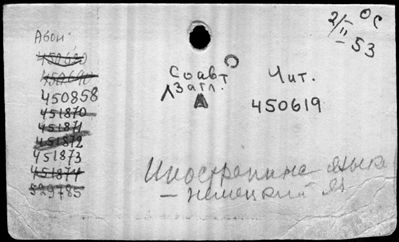 Абон:
450620
450690
450858
451870
451871
451872
451873
451874
529785
Соавт
Загл.
А
Чит.
450619
2/II-53
ОС
Иностранные языки
— немецкий яз